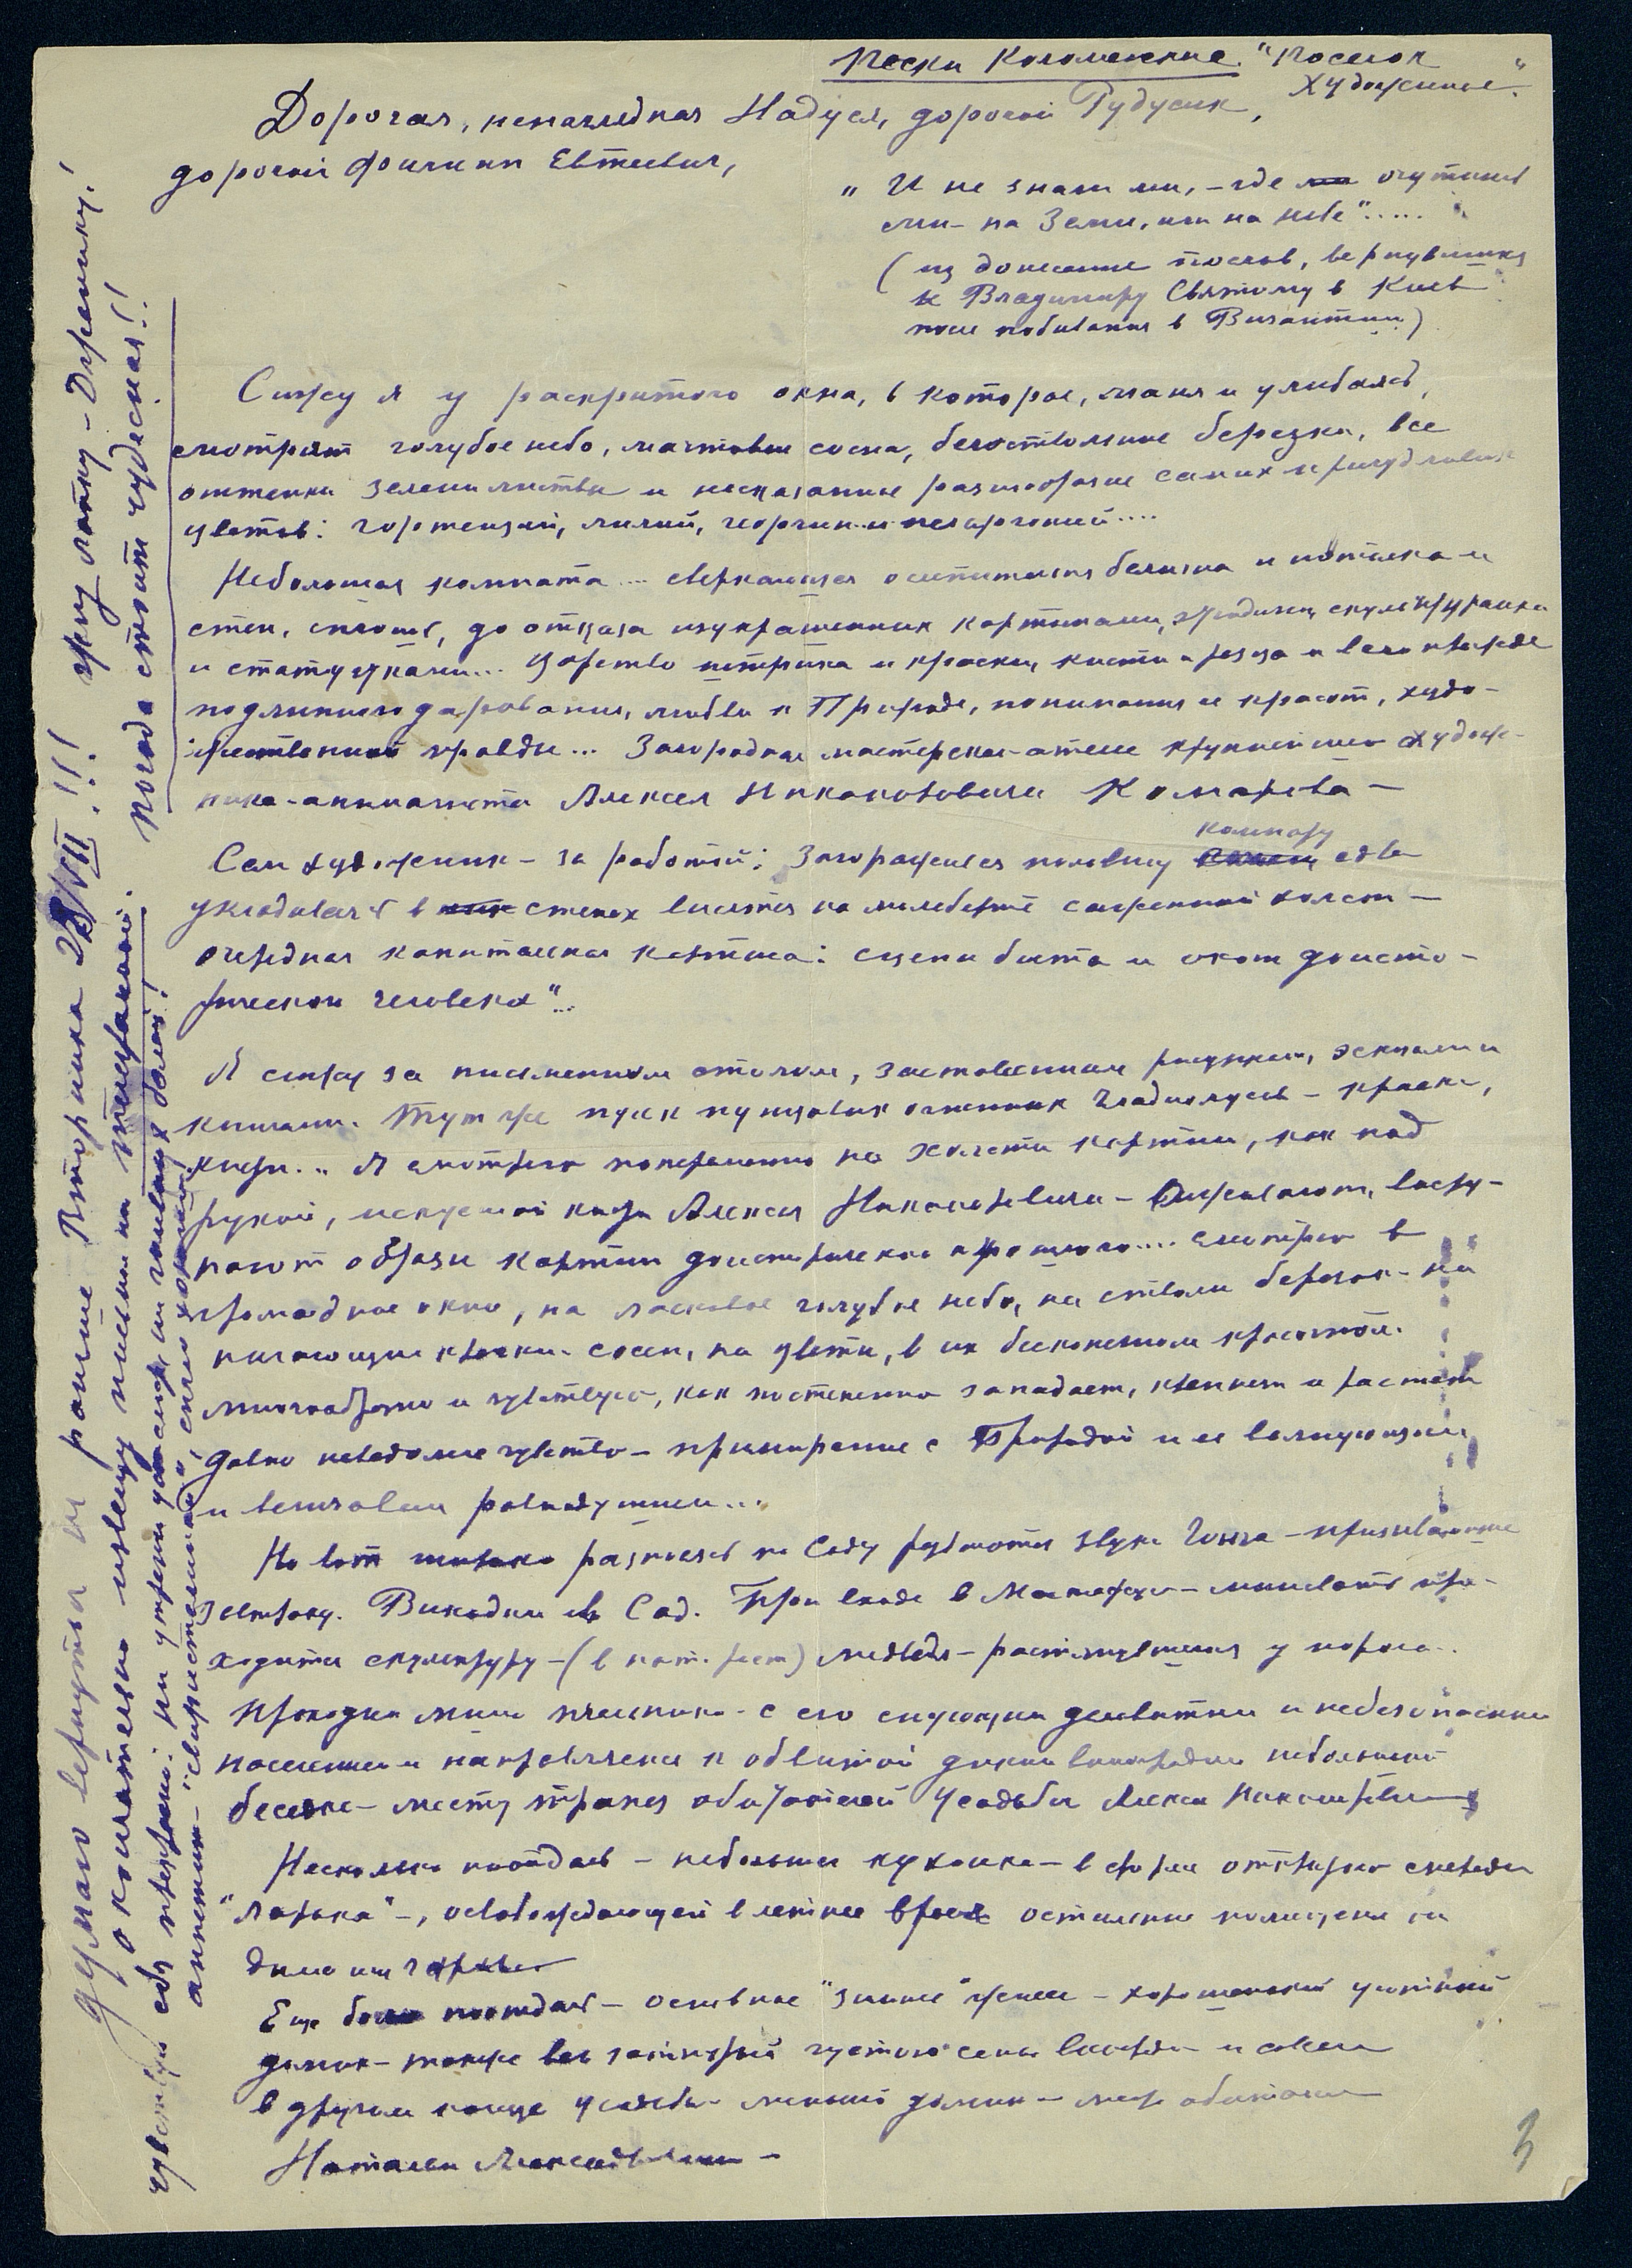 Пески Коломенские. "Поселок
Художников".
Дорогая, ненаглядная Надуся, дорогой Рудусик,
дорогой Филипп Евтеевич,
" И не знали мы, – где мы очутились
мы – на Земли, или на небе".....
(из донесение послов, вернувшихся
к Владимиру Святому в Киев
после побывания в Византии)
Сижу я у раскрытого окна, в которое, маня и улыбаясь,
смотрят голубое небо, мачтовые сосны, белоствольные березки, все
оттенки зелени листвы и несказанное разнообразие самых причудливых
цветов: гортензий, лилий, георгин и пеларгоний....
Небольшая комната... сверкающая ослепительная белизна и потолка и
стен, сплошь, до отказа изукрашенных картинами, этюдами, скульптурами
и статуэтками... Царство штриха и краски, кисти и резца и всего превыше
подлинного дарования, любви к Природе, понимания ее красот, худо-
жественной правды... Загородная мастерская-ателье крупнейшего худож-
ника-анималиста Алексея Никаноровича Комарова –
Сам художник – за работой: Загораживая половину комнаты едва
укладываясь в стенах высится на мольберте саженный холст –
очередная капитальная картина: сцены быта и охот доисто-
рического человека"..
Я сижу за письменным столом, заставленным рисунками, эскизами и
книгами. Тут же пуск пунцовых огненных гладиолусов – краски,
кисти... Я смотрю попеременно на холсты картин, как под
рукой, искусной кисти Алексея Никаноровича – оживают, высту-
пают образы картин доисторического прошлого.... смотрю в
громадное окно, на ласковое голубое небо, на стволы березок – на
кроны сосен, на цветы, в их бесконечном красочном
многообразии и чувствую, как постепенно западает, крепнет и растет
давно неведомое чувство – примирение с Природой и ее волнующим
и вечным равнодушием...
Но вот разносясь по Саду раздаются звуки Гонга – призывающие
к завтраку. Выходим в Сад. При входе в Мастерскую – миновать при-
ходится скульптуру – (в нат. рост) медведя – растянувшегося у порога..
Проходим мимо пчельника – с его снующим деловитым и небезопасным
населением и направляемся к обвитой диким виноградом небольшой
беседке – месту трапез обитателей Усадьбы Алексея Никаноровича
Несколько поодаль – небольшая кухонька – в форме открытого спереди
"Ларька" –, освобождающей в летнее время остальные помещения от
дыма или гари
Еще более поодаль – основное "зимнее" жилье – хорошенький уютный
домик – также весь затянутый густою сенью винограда и
в другом конце усадьбы – меньший домик – мир обитания
Наталии Александровны –
3
Думаю вернуться не раньше Вторника 28/VII!!! Жду лодку – Држевецкую!
Окончательно извещу письмом или телеграммой. Погода стоит чудесная!!
чувствую себя прекрасно: ни утренних головных болей!
аппетит – "сон хороший!